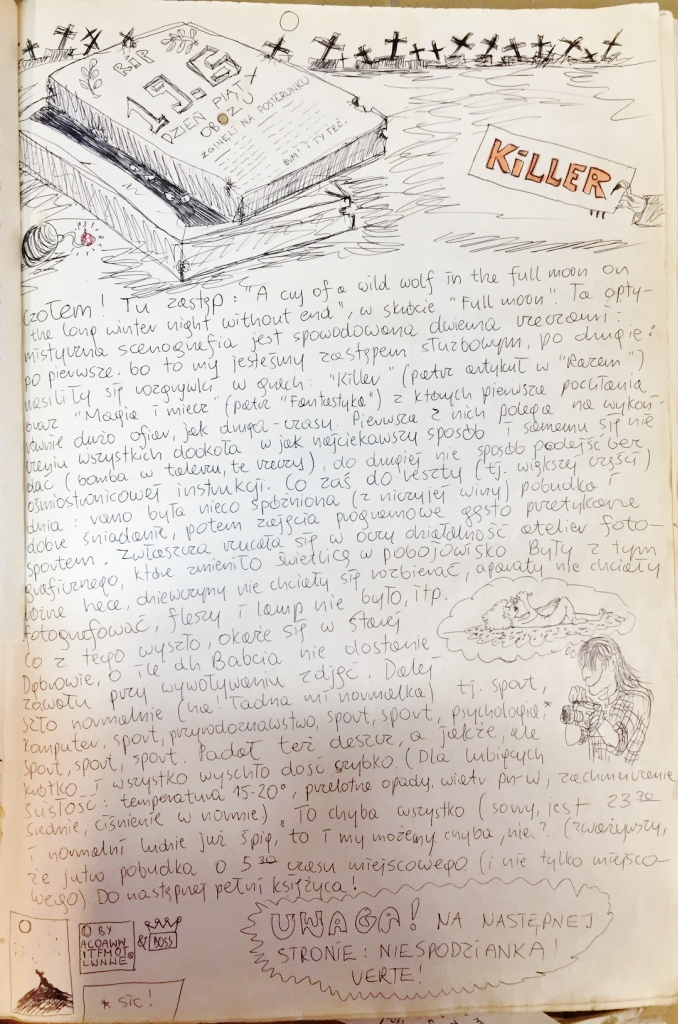 RIP
19.5
DZIEŃ PIĄTY
OBOZU
ZGINĘLI NA POSTERUNKU
BUM! I TY TEŻ.
KiLLER
Czołem! Tu zastęp: "A cry of a wild wolf in the full moon on
the long winter night without end", w skrócie "Full moon". Ta opty-
mistyczna scenografia jest spowodowana dwiema rzeczami:
po pierwsze: bo to my jesteśmy zastępem służbowym, po drugie:
nasiliły się rozgrywki w grach: "Killer" (patrz artykuł w "Razem")
oraz "Magia i miecz" (patrz "Fantastyka") z których pierwsza pochłania
równie dużo ofiar, jak druga - czasu. Pierwsza z nich polega na wykoń-
czeniu wszystkich dookoła w jak najciekawszy sposób i samemu się nie
dać (bomba w talerzu, te rzeczy), do drugiej nie sposób podejść bez
ośmiostronicowej instrukcji. Co zaś do reszty (tj. większej części)
dnia: rano była nieco spóźniona (z niczyjej winy) pobudka i
dobre śniadanie, potem zajęcia programowe gęsto przetykane
sportem. Zwłaszcza rzucała się w oczy działalność atelier foto-
graficznego, które zmieniło świetlicę w pobojowisko. Były z tym
różne hece, dziewczyny nie chciały się rozbierać, aparaty nie chciały
fotografować, fleszy i lamp nie było, itp.
Co z tego wyszło, okaże się w Starej
Dąbrowie, o ile dh Babcia nie dostanie
zawału przy wywoływaniu zdjęć. Dalej
szło normalnie (ha! Ładna mi normalka) tj. sport,
komputer, sport, przyrodoznawstwo, sport, sport, psychologia,*
sport, sport, sport. Padał też deszcz, a jakże, ale
krótko i wszystko wyschło dość szybko. (Dla lubiących
ścisłość: temperatura 15-20°, przelotne opady, wiatr pn-w, zachmurzenie
średnie, ciśnienie w normie). To chyba wszystko (sorry, jest 23³⁰
i normalni ludzie już śpią, to i my możemy chyba, nie? (zważywszy,
że jutro pobudka o 5³⁰ czasu miejscowego (i nie tylko miejsco-
wego). Do następnej pełni księżyca!
UWAGA! NA NASTĘPNEJ
STRONIE: NIESPODZIANKA!
VERTE!
© BY
ACOAWW
ITFMOT
LWNWE
& BOSS
* sic!